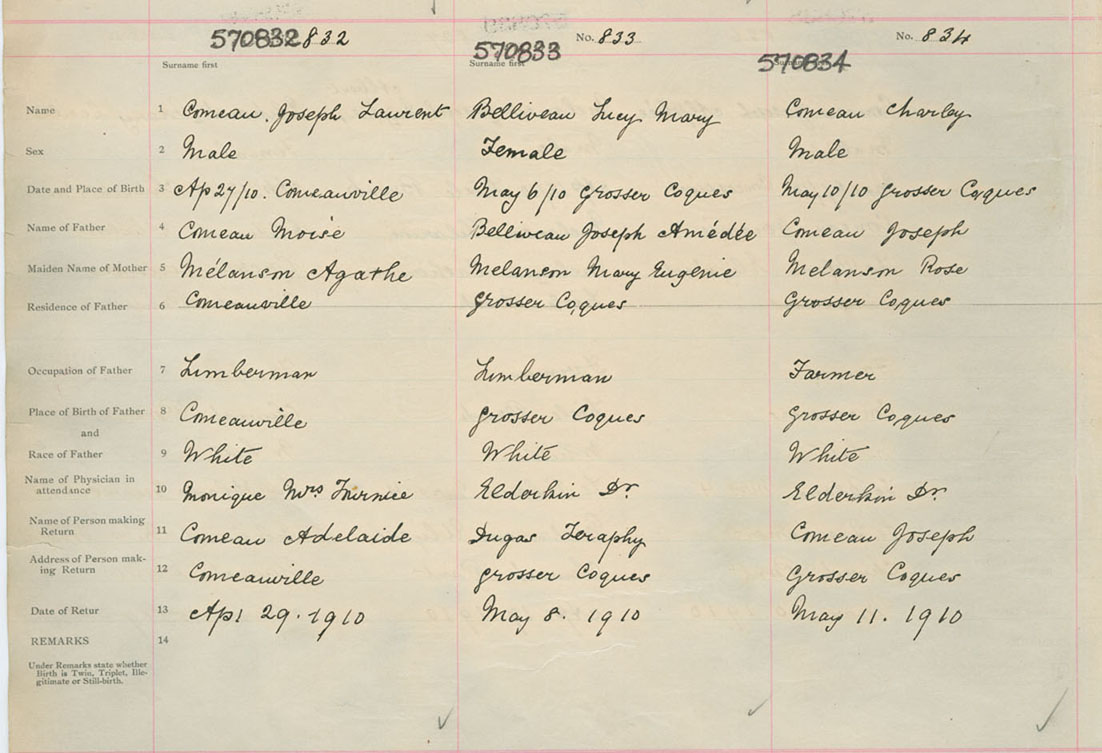 570832 832 570833 No. 833 570834 No. 834
Surname first Surname first
Name 1 Comeau. Joseph Laurent Belliveau Lucy Mary Comeau Charley
Sex 2 Male Female Male
Date and Place of Birth 3 Ap 27/10. Comeauville May 6/10 Grosser Coques May 10/10 Grosser Coques
Name of Father 4 Comeau Moïse Belliveau Joseph Amédée Comeau Joseph
Maiden Name of Mother 5 Mélanson Agathe Melanson Mary Eugénie Melanson Rose
Residence of Father 6 Comeauville Grosser Coques Grosser Coques
Occupation of Father 7 Lumberman Lumberman Farmer
Place of Birth of Father 8 Comeauville Grosser Coques Grosser Coques
and
Race of Father 9 White White White
Name of Physician in
attendance 10 Monique Mrs Elderkin Dr. Elderkin Dr.
Name of Person making
Return 11 Comeau Adelaide Dugas Comeau Joseph
Address of Person mak-
ing Return 12 Comeauville Grosser Coques Grosser Coques
Date of Retur 13 Apl 29. 1910 May 8. 1910 May 11. 1910
REMARKS 14
Under Remarks state whether
Birth is Twin, Triplet, Ille-
gitimate or Still-birth.